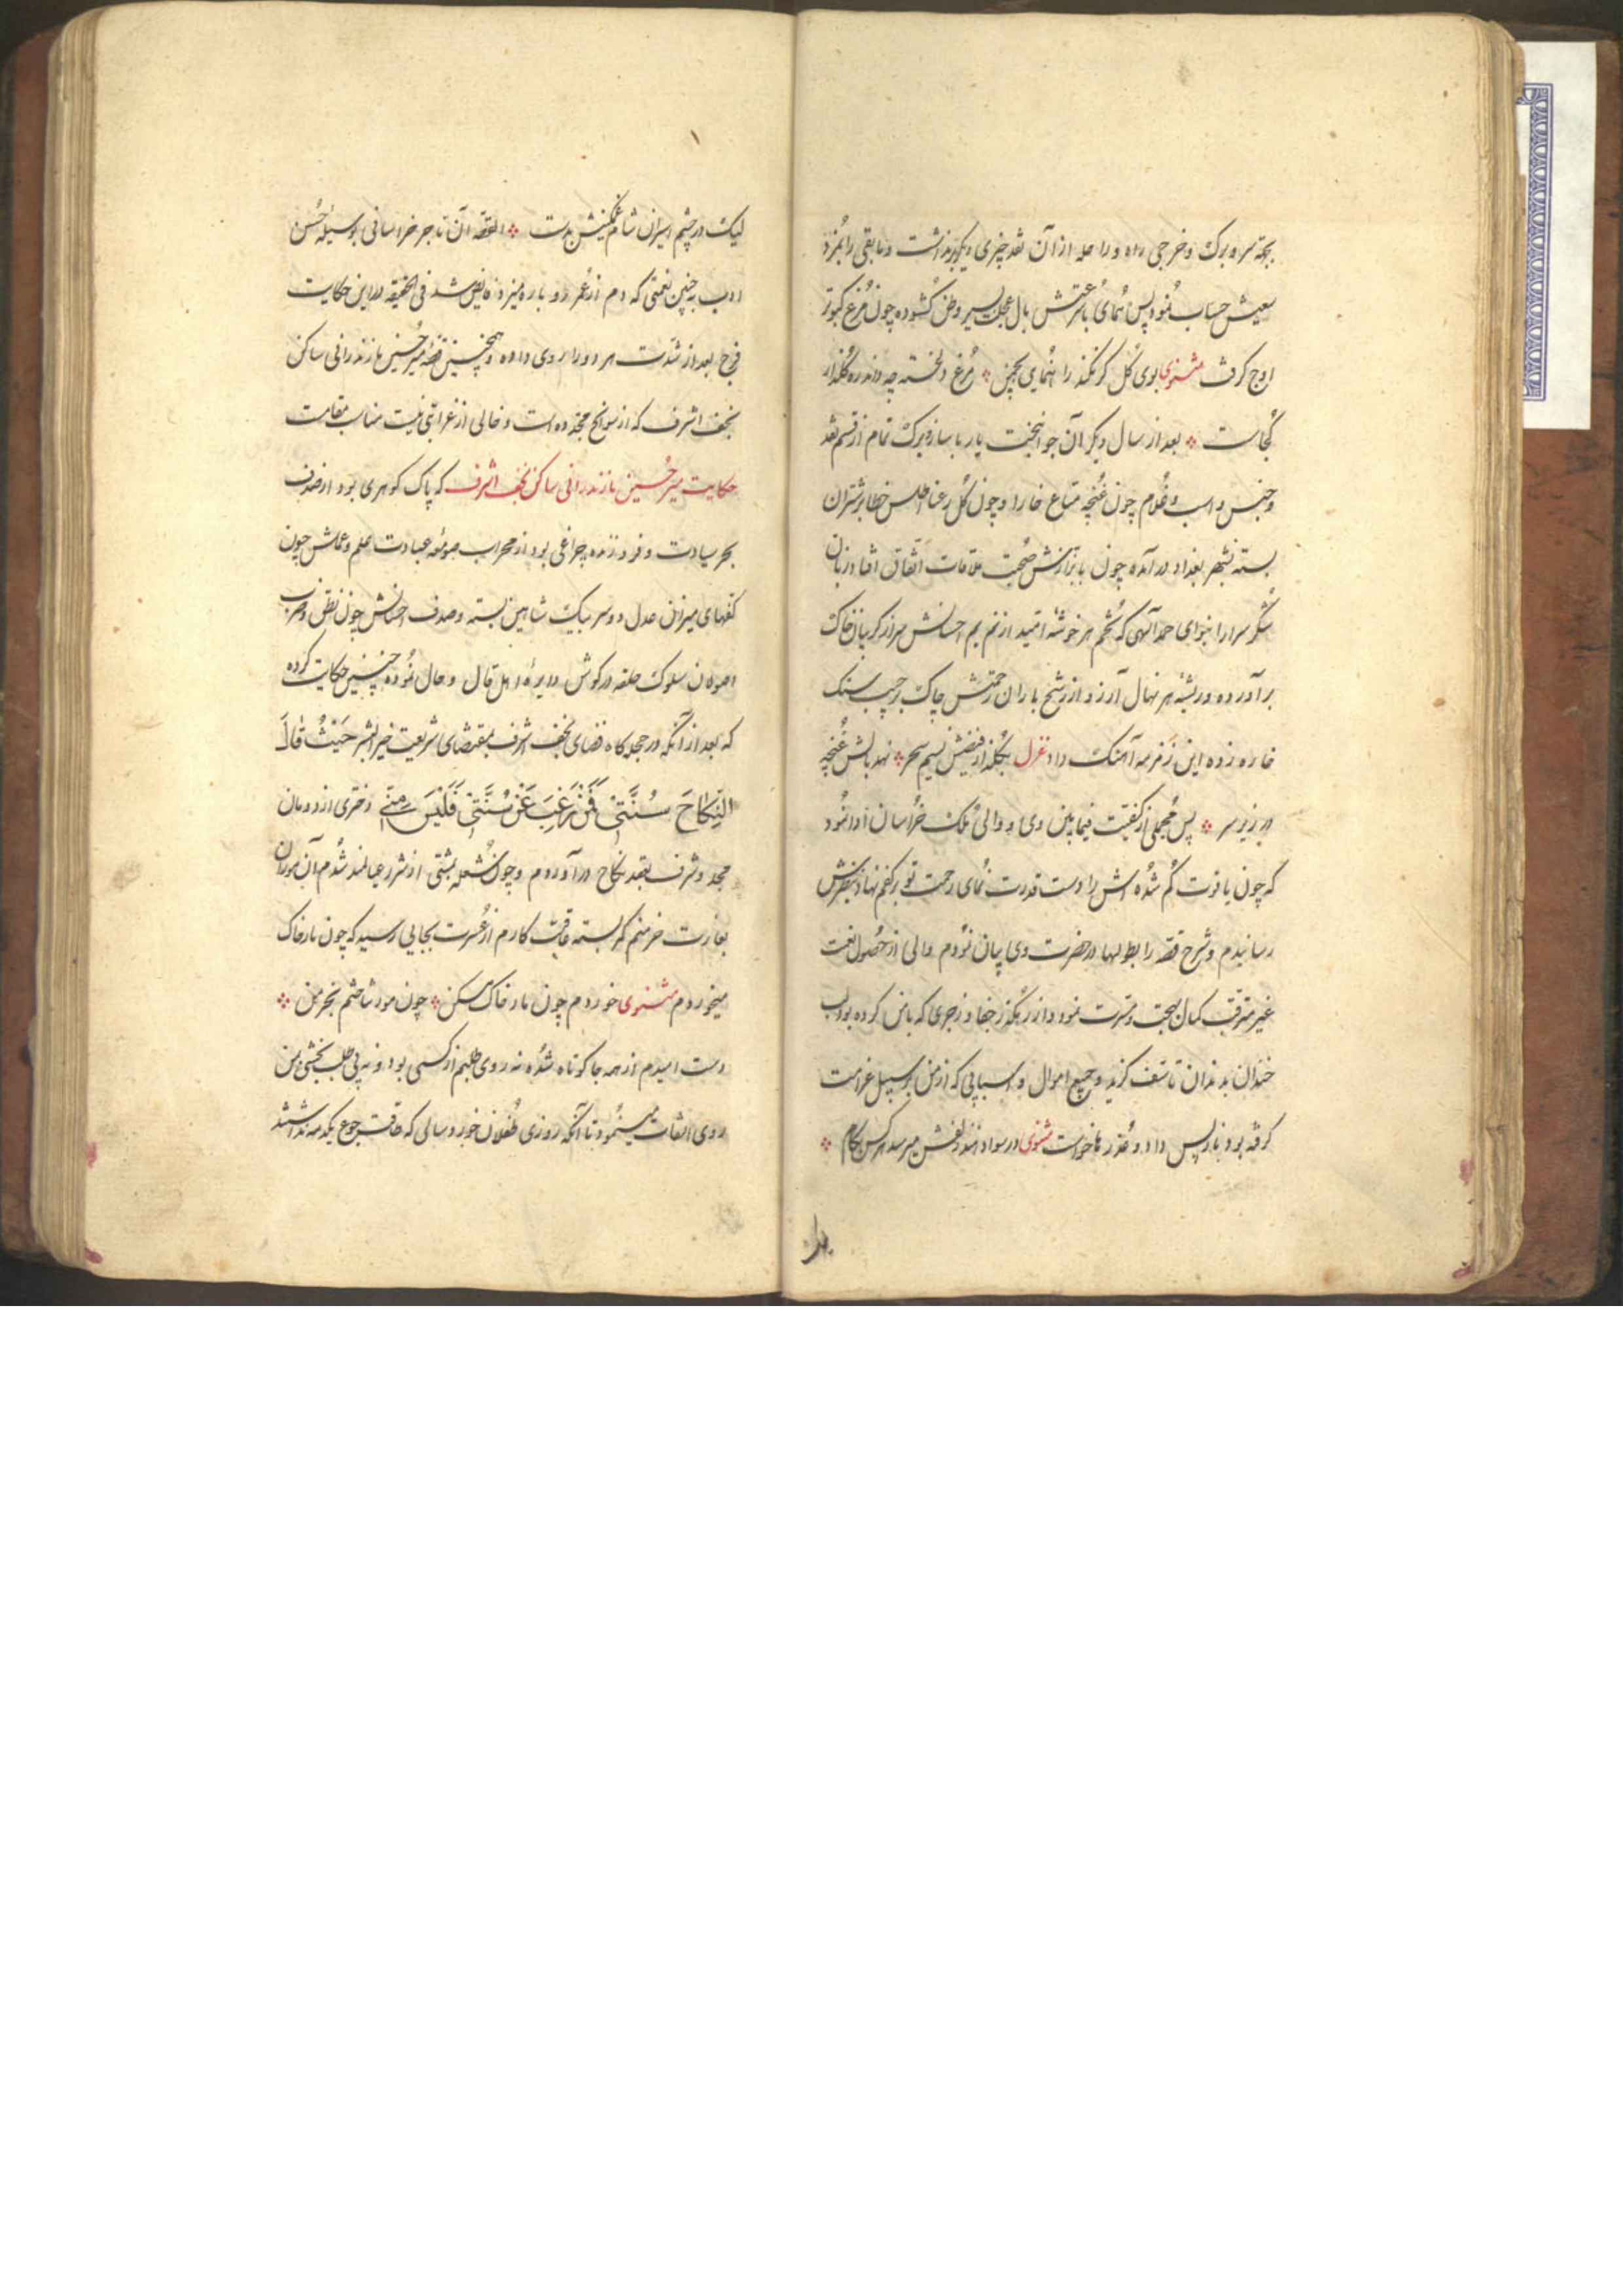 بجهة سر و برک و خرجی راه و راحله از آن نقد چیزی دیگر برنداشت و مابقی را بمزد
سعیش حساب نمود پس همای با عزتش بال عجلت بسیر وطن کشوده چون مرغ کبوتر
اوج کرفت مثنوی بوی کل کر نکند راهنمایی بچمن مرغ دلخسته چه داند ره کلزار
کجاست بعد از سال دیکر آن جوانبخت یار با ساز و برک تمام از قسم نقد
و جنس و اسب و غلام چون غنچه متاع خارا و چون کل رعنا اطلس خطا بر شتران
بسته بشهر بغداد درآمده چون با بزازش صحبت ملاقات اتفاق افتاد زبان
شکر سرا را بنوای حمد آلهی که تخم هر خوشه امید از نم یم احسانش سر از کریبان خاک
برآورده و ریشه هر نهال آرزو از رشح باران رحمتش چاک بر جیب سنک
خاره زده این زمزمه آهنک داد غزل بکلزار فیضش نسیم سحر نهد بالش غنچه
در زیر سر پس مجملی از کیفیت فیمابین وی و والی ملک خراسان ادا نمود
که چون یاقوت کم شده اش را دست قدرت نمای رحمت تو بر کفم نهاد بنظرش
رسانیدم و شرح قصه را بطولها در حضرت وی بیان نمودم والی از حصول نعمت
غیر مترقب کمال بهجت و مسرت نمود و از رهکذر جفا و زجری که با من کرده بود لب
خندان بدندان تاسف کزید و جمیع اموال و اسبابی که از من بر سبیل غرامت
کرفته بود باز پس داد و عذرها خواست مثنوی در سواد هند زلفش میرسد هر کس بکام
لیک در چشم اسیران شام غمکینش بدست القصه آن تاجر خراسانی بوسیله حسن
ادب بچنین نعمتی که دم از عمر دوباره میزد فایض شد فی الحقیقه در این حکایت
فرج بعد از شدت هر دو را روی داده و همچنین قصه میر حسین مازندرانی ساکن
نجف اشرف که از سوانح مجدده است و خالی از غرابتی نیست مناسب مقامست
حکایت میر حسین مازندرانی ساکن نجف اشرف که پاک کوهری بود از صدف
بحر سیادت و فروزنده چراغی بود از محراب صومعه عبادت علم و عملش چون
کفهای میزان عدل دو سر بیک شاهین بسته و صدف احسانش چون نقش و ضرب
اصولان سلوک حلقه در کوش دایره اهل قال و حال نموده چنین حکایت کرده
که بعد از آنکه در حجله کاه فضای نجف اشرف بمقتضای شریعت خیر البشر حَیْثُ قالَ
النِّکاحَ سُنَّتی فَمَنْ رَغِبَ عَنْ سُنَّتی فَلَیْسَ مِنّی دختری از دودمان
مجد و شرف بعقد نکاح درآوردم و چون شعله بمشتی از شرر عیالمند شدم آن موران
بغارت خرمنم کمر بسته عاقبت کارم از عسرت بجایی رسید که چون مار خاک
میخوردم مثنوی خوردم چون مار خاک مسکن چون مور شاختم بخرمن
دست امیدم از همه جا کوتاه شده نه روی طلبم از کسی بود و نه بی طلب بخشی بمن
روی التفات مینمود تا آنکه روزی طفلان خورد سالی که طاقت جوع یکدمه نداشتند